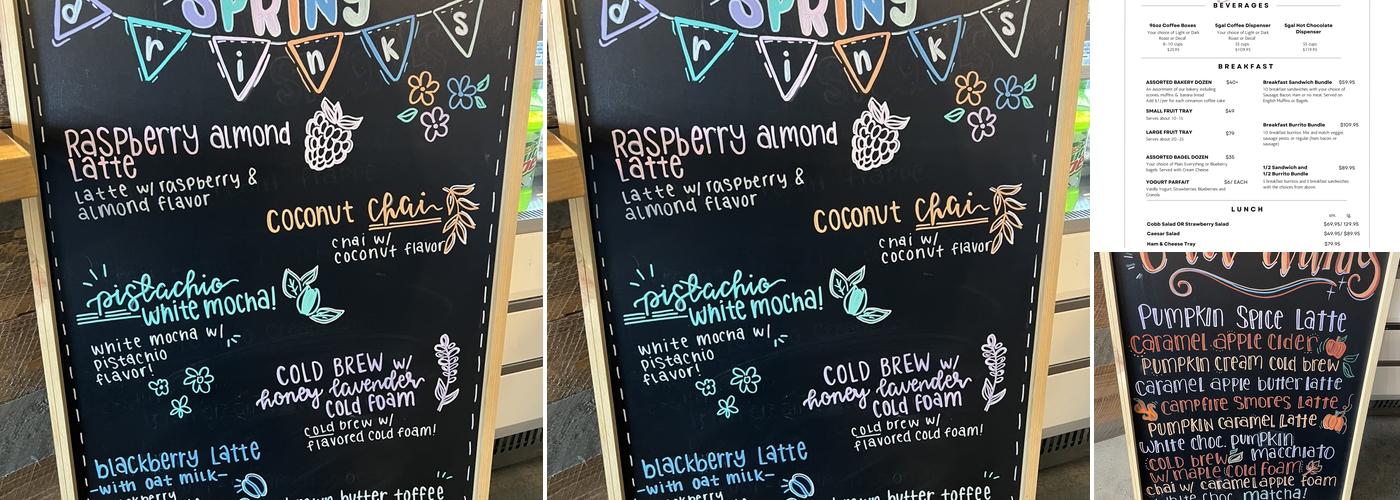 SPRING
drinks
Raspberry almond
Latte
Latte w/ raspberry &
almond flavor
coconut chai
chai w/
coconut flavor
pistachio
white mocha!
white mocha w/
pistachio
flavor!
COLD BREW w/
honey lavender
cold foam
cold brew w/
flavored cold foam!
blackberry Latte
-with oat milk-
butter toffee
SPRING
drinks
Raspberry almond
Latte
Latte w/ raspberry &
almond flavor
coconut chai
chai w/
coconut flavor
pistachio
white mocha!
white mocha w/
pistachio
flavor!
COLD BREW w/
honey lavender
cold foam
cold brew w/
flavored cold foam!
blackberry Latte
-with oat milk-
butter toffee
BEVERAGES
96oz Coffee Boxes
Your choice of Light or Dark
Roast or Decaf
8-10 cups
$25.95
5gal Coffee Dispenser
Your choice of Light or Dark
Roast or Decaf
55 cups
$109.95
5gal Hot Chocolate
Dispenser
55 cups
$119.95
BREAKFAST
ASSORTED BAKERY DOZEN $40+
An assortment of our bakery including
scones, muffins & banana bread
Add $1/per for each cinnamon coffee cake
SMALL FRUIT TRAY $49
Serves about 10-15
LARGE FRUIT TRAY $79
Serves about 20-25
ASSORTED BAGEL DOZEN $35
Your choice of Plain Everything or Blueberry
bagels Served with Cream Cheese
YOGURT PARFAIT $6/ EACH
Vanilla Yogurt, Strawberries, Blueberries and
Granola
Breakfast Sandwich Bundle $59.95
10 breakfast sandwiches with your choice of
Sausage, Bacon, Ham or no meat. Served on
English Muffins or Bagels.
Breakfast Burrito Bundle $109.95
10 breakfast burritos. Mix and match veggie,
sausage pesto, or regular (ham, bacon, or
sausage)
1/2 Sandwich and
1/2 Burrito Bundle $89.95
5 breakfast burritos and 5 breakfast sandwiches
with the choices from above.
LUNCH
sm. lg.
Cobb Salad OR Strawberry Salad $69.95/ 129.95
Caesar Salad $49.95/ $89.95
Ham & Cheese Tray $79.95
Pumpkin Spice Latte
caramel apple cider
Pumpkin cream cold brew
caramel apple butter latte
campfire smores latte
Pumpkin caramel latte
white choc. pumpkin
macchiato
cold brew
w/ maple cold foam
chai w/ caramel apple foam
white choc matcha!